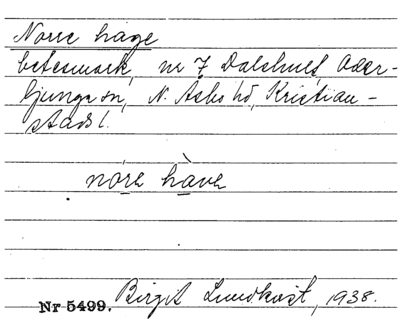 Norre hage
betesmark, nr 7 Dalshult, Oder-
ljunga sn, N. Åsbo hd, Kristian-
stads l.
nóre hàva
Nr 5499. Birgit Lundkvist, 1938.